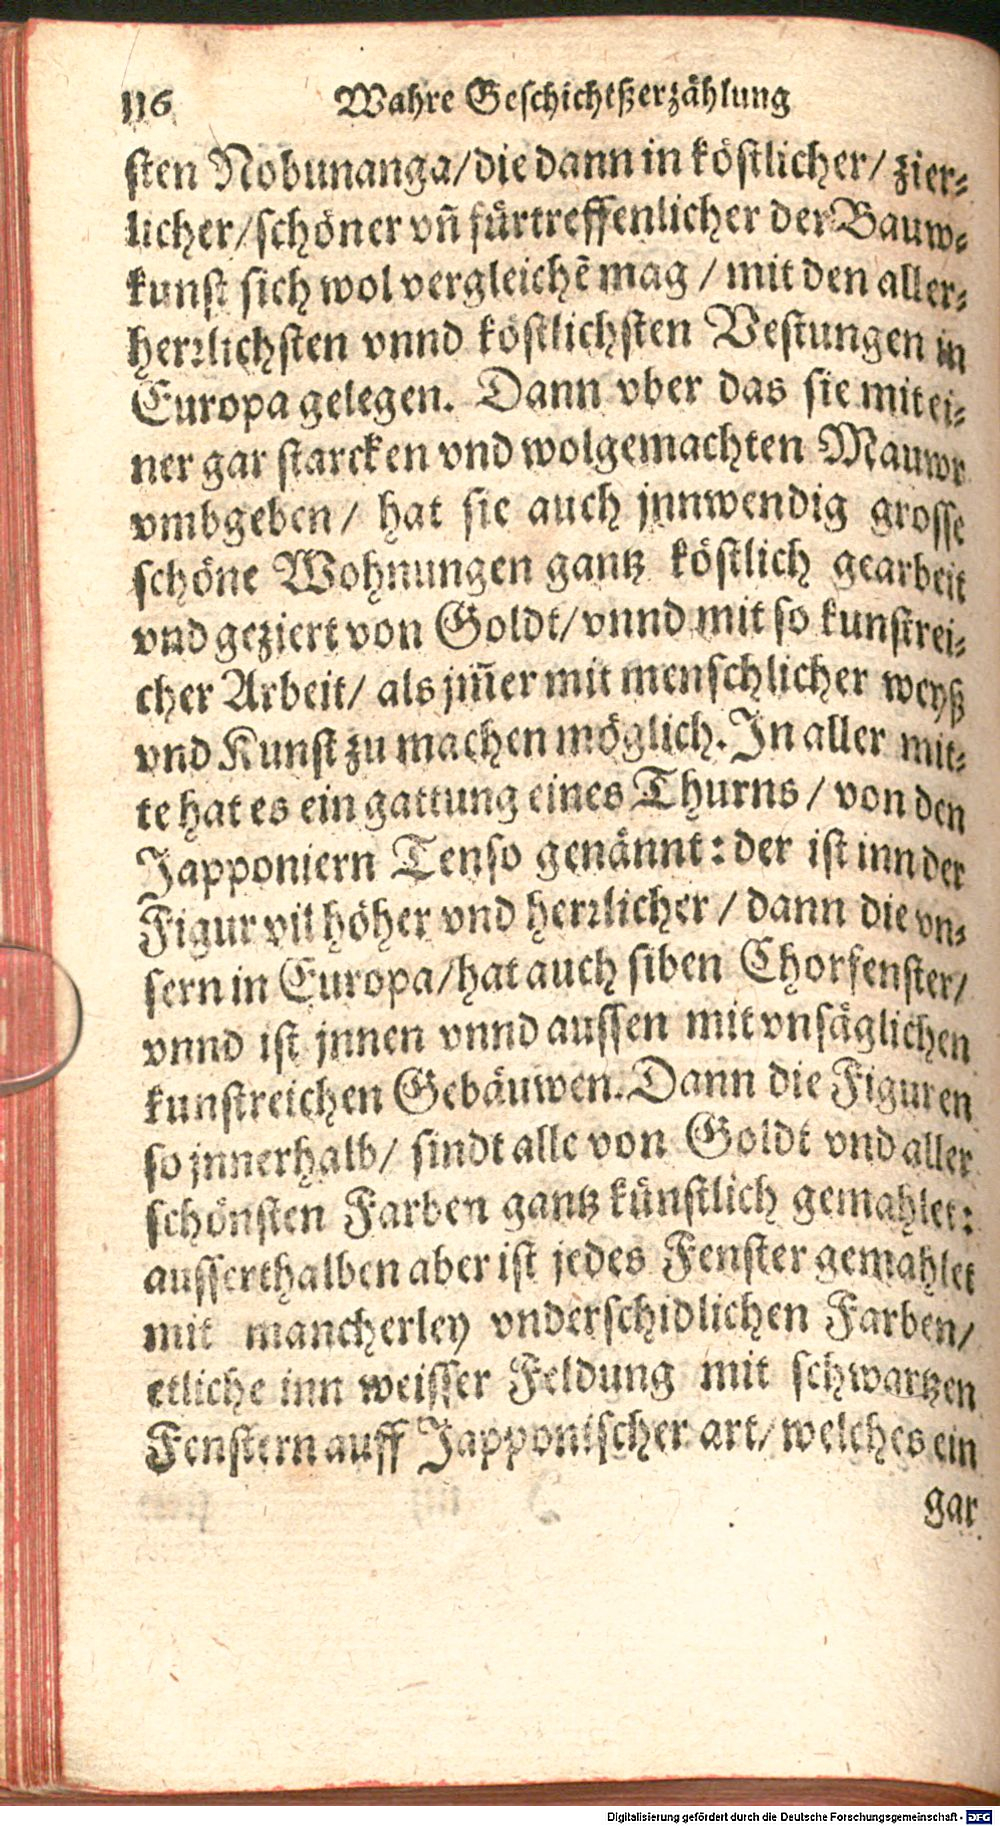 116 Wahre Geschichtßerzählung
sten Nobunanga/die dann in köstlicher/ zier-
licher/schöner vñ fürtreffenlicher der Bauw-
kunst sich wol vergleichẽ mag / mit den aller-
herrlichsten vnnd köstlichsten Vestungen in
Europa gelegen. Dann vber das sie mit ei-
ner gar starcken vnd wolgemachten Mauwr
vmbgeben/ hat sie auch jnnwendig grosse
schöne Wohnungen gantz köstlich gearbeit
vnd geziert von Goldt/vnnd mit so kunstrei-
cher Arbeit/ als jm̃er mit menschlicher weyß
vnd Kunst zu machen möglich. In aller mit-
te hat es ein gattung eines Thurns / von den
Japponiern Tenso genännt: der ist inn der
Figur vil höher vnd herrlicher / dann die vn-
sern in Europa/hat auch siben Chorfenster/
vnnd ist jnnen vnnd aussen mit vnsäglichen
kunstreichen Gebäuwen. Dann die Figuren
so jnnerhalb/ sindt alle von Goldt vnd aller
schönsten Farben gantz künstlich gemahlet:
ausserthalben aber ist jedes Fenster gemahlet
mit mancherley vnderschidlichen Farben/
etliche inn weisser Feldung mit schwartzen
Fenstern auff Japponischer art/ welches ein
gar
Digitalisierung gefördert durch die Deutsche Forschungsgemeinschaft - DFG